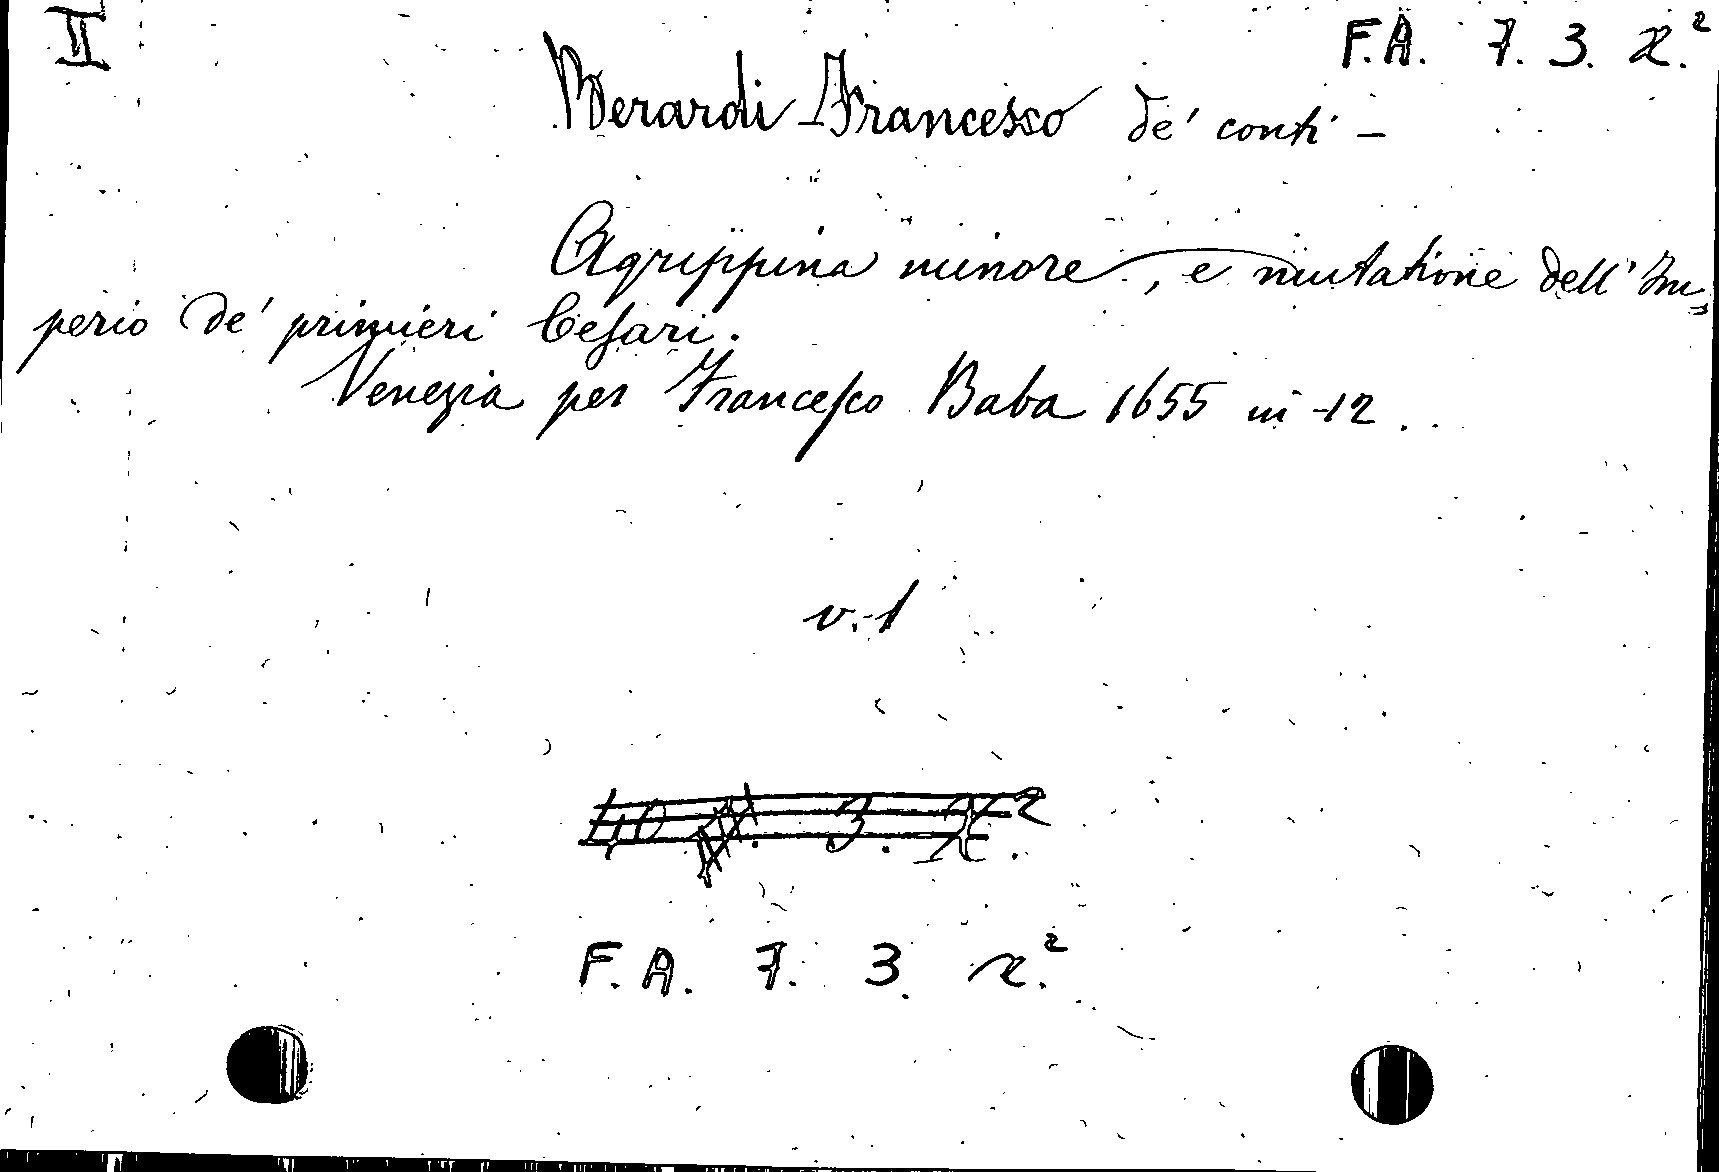 II
F.A. 7. 3. x.²
Berardi Francesco de' conti -
Agrippina minore, e mutatione dell'Im=
perio de' primieri Cesari.
Venezia per Francesco Baba 1655 in-12.
v. 1
3. X.²
F.A. 7. 3. x.²